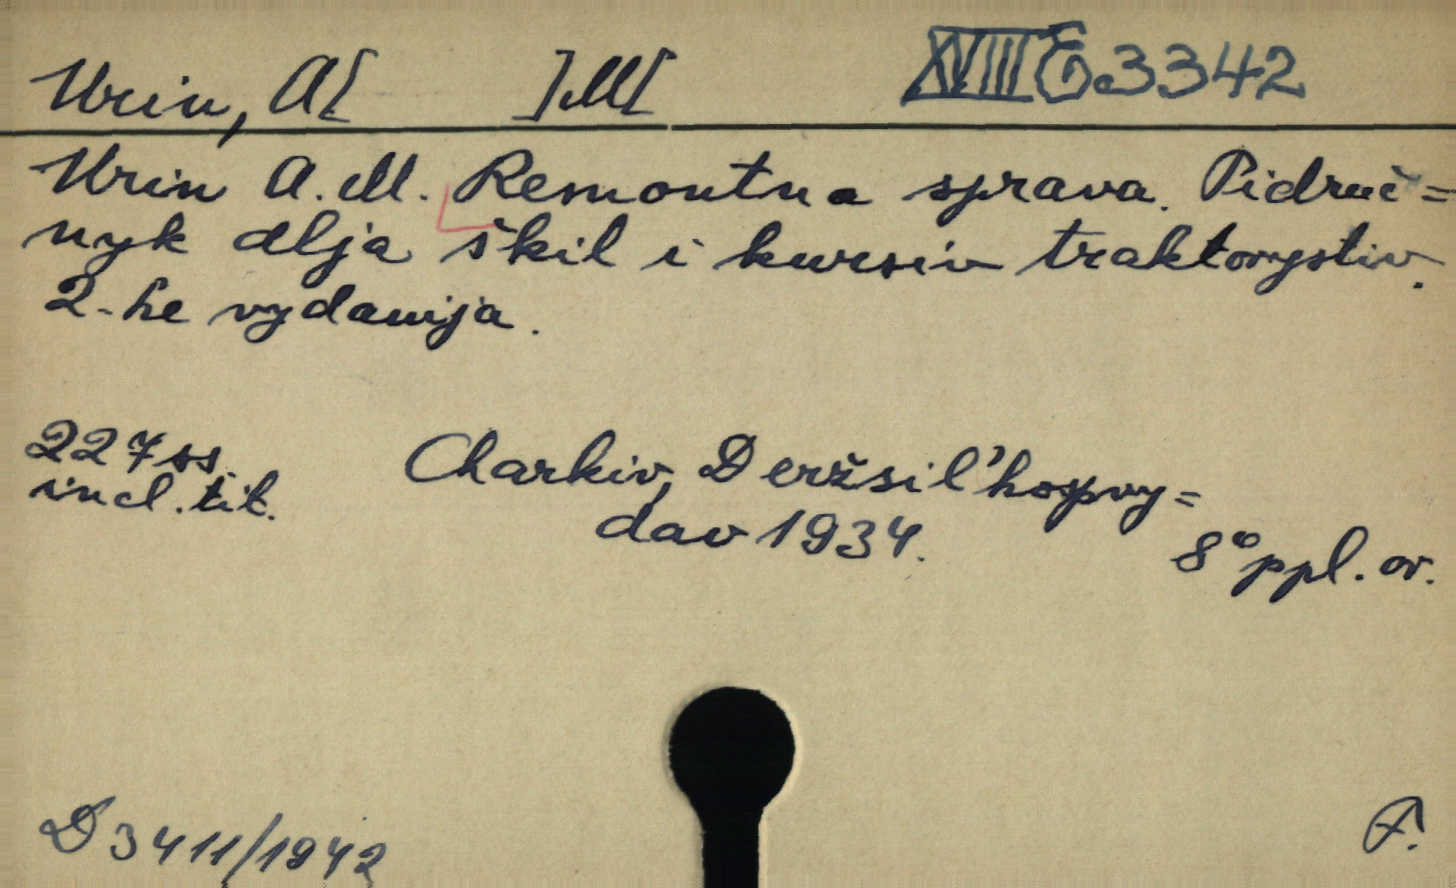 Urin, A[ ] M[
XVIII E 3342
Urin A. M. Remontna sprava. Pidruč=
nyk dlja škil i kursiv traktorystiv.
2-he vydannja.
227 ss.
incl. tit.
Charkiv, Deržsil'hospvy=
dav 1934.
8° ppl. or.
D 3411/1942
F.